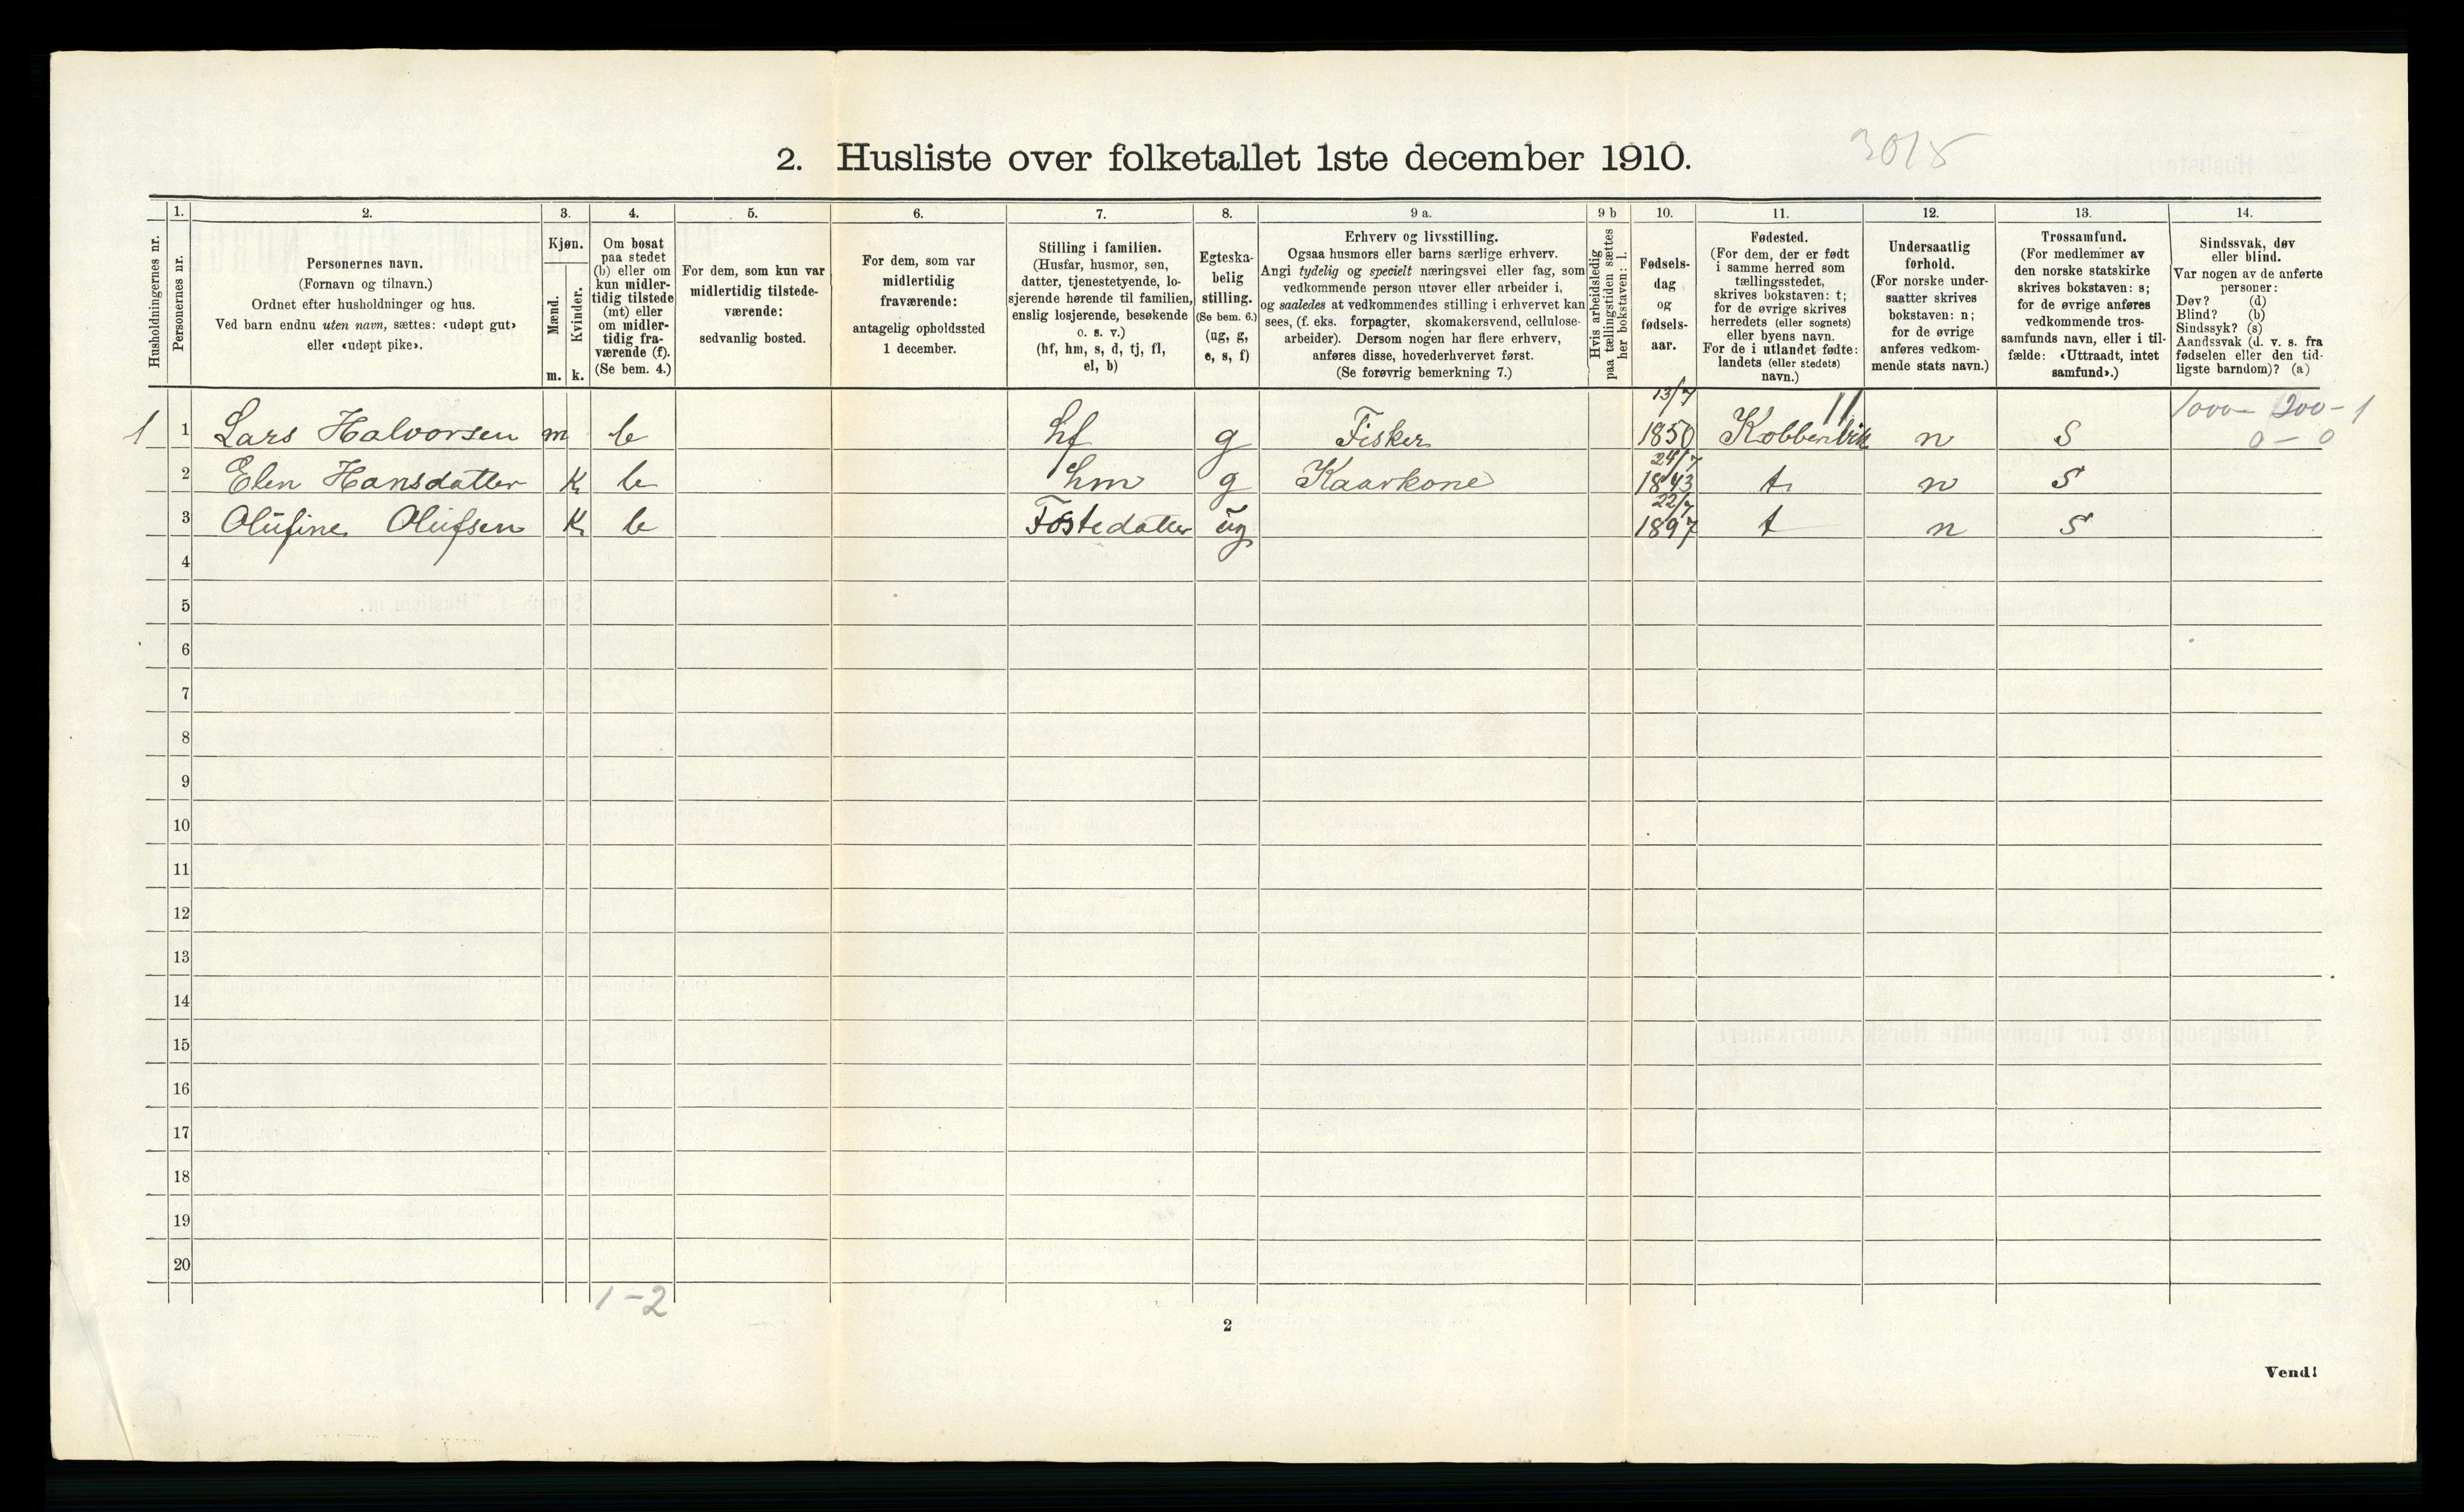 2. Husliste over folketallet 1ste december 1910.
3015
1. 2. 3. 4. 5. 6. 7. 8. 9 a. 9 b 10. 11. 12. 13. 14.
Husholdningernes nr.
Personernes nr.
Personernes navn.
(Fornavn og tilnavn.)
Ordnet efter husholdninger og hus.
Ved barn endnu uten navn, sættes: «udøpt gut»
eller «udøpt pike».
Kjøn.
Mænd.
Kvinder.
m. k.
Om bosat
paa stedet
(b) eller om
kun midler-
tidig tilstede
(mt) eller
om midler-
tidig fra-
værende (f).
(Se bem. 4.)
For dem, som kun var
midlertidig tilstede-
værende:
sedvanlig bosted.
For dem, som var
midlertidig
fraværende:
antagelig opholdssted
1 december.
Stilling i familien.
(Husfar, husmor, søn,
datter, tjenestetyende, lo-
sjerende hørende til familien,
enslig losjerende, besøkende
o. s. v.)
(hf, hm, s, d, tj, fl,
el, b)
Egteska-
belig
stilling.
(Se bem. 6.)
(ug, g,
e, s, f)
Erhverv og livsstilling.
Ogsaa husmors eller barns særlige erhverv.
Angi tydelig og specielt næringsvei eller fag, som
vedkommende person utøver eller arbeider i,
og saaledes at vedkommendes stilling i erhvervet kan
sees, (f. eks. forpagter, skomakersvend, cellulose-
arbeider). Dersom nogen har flere erhverv,
anføres disse, hovederhvervet først.
(Se forøvrig bemerkning 7.)
Hvis arbeidsledig
paa tællingstiden sættes
her bokstaven: l.
Fødsels-
dag
og
fødsels-
aar.
Fødested.
(For dem, der er født
i samme herred som
tællingsstedet,
skrives bokstaven: t;
for de øvrige skrives
herredets (eller sognets)
eller byens navn.
For de i utlandet fødte:
landets (eller stedets)
navn.)
Undersaatlig
forhold.
(For norske under-
saatter skrives
bokstaven: n;
for de øvrige
anføres vedkom-
mende stats navn.)
Trossamfund.
(For medlemmer av
den norske statskirke
skrives bokstaven: s;
for de øvrige anføres
vedkommende tros-
samfunds navn, eller i til-
fælde: «Uttraadt, intet
samfund».)
Sindssvak, døv
eller blind.
Var nogen av de anførte
personer:
Døv? (d)
Blind? (b)
Sindssyk? (s)
Aandssvak (d. v. s. fra
fødselen eller den tid-
ligste barndom)? (a)
13/7 11 1000 – 200 – 1
1 1 Lars Halvorsen m b hf g Fisker 1850 Kobbervik n S 0 – 0
24/7
2 Elen Hansdatter K b hm g Kaarkone 1843 t n S
22/7
3 Olüfine Olüfsen K b Fostedatter üg 1897 t n S
4
5
6
7
8
9
10
11
12
13
14
15
16
17
18
19
20
1 – 2
2
Vend!